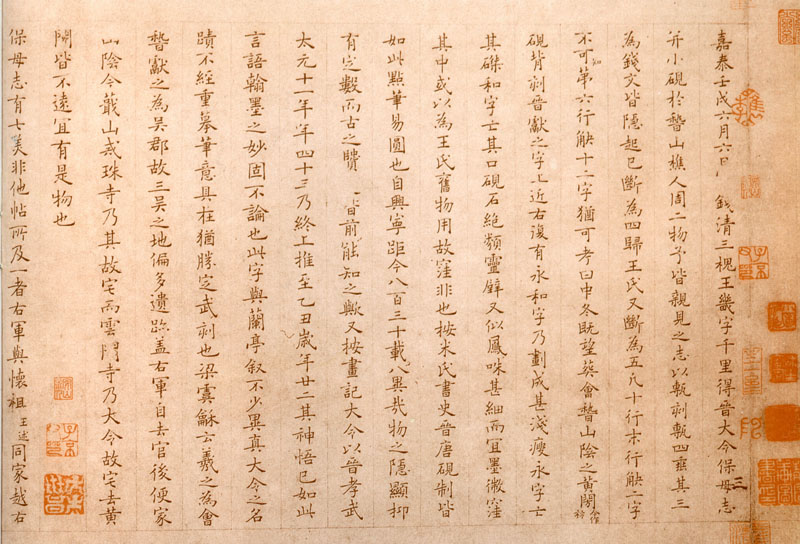 嘉泰壬戌六月六日錢清三槐王畿字千里得晉大令保母志
并小硯於嵇山樵人周二物予皆親見之志以甎刻甎四垂其三
為錢文皆隱起已斷為四歸王氏又斷為五凡十行末行觖二字
不可知第六行觖十二字猶可考曰中冬既望葬會嵇山陰之黃閍
硯背刻晉獻之字上近右復有永和字乃劃成甚淺瘦永字亡
其磔和字亡其口硯石絕類靈壁又似鳳咮甚細而宜墨微窪
其中或以為王氏舊物用故窪非也按米氏書史晉唐硯制皆
如此點筆易圓也自興寧距今八百三十載八異哉物之隱顯抑
有定數而古之前能知之歟又按畫記大令以晉孝武
太元十一年年四十三乃終上推至乙丑歲年廿二其神悟已如此
言語翰墨之妙固不論也此字與蘭亭叙不少異真大令之名
蹟不經重摹筆意具在猶勝定武刻也梁虞龢云羲之為會
嵇獻之為吳郡故三吳之地偏多遺跡蓋右軍自去官後便家
山陰今蕺山戒珠寺乃其故宅而雲門寺乃大令故宅去黃
閍皆不遠宜有是物也
保母志有七美非他帖所及一者右軍與懷祖王述同家越右